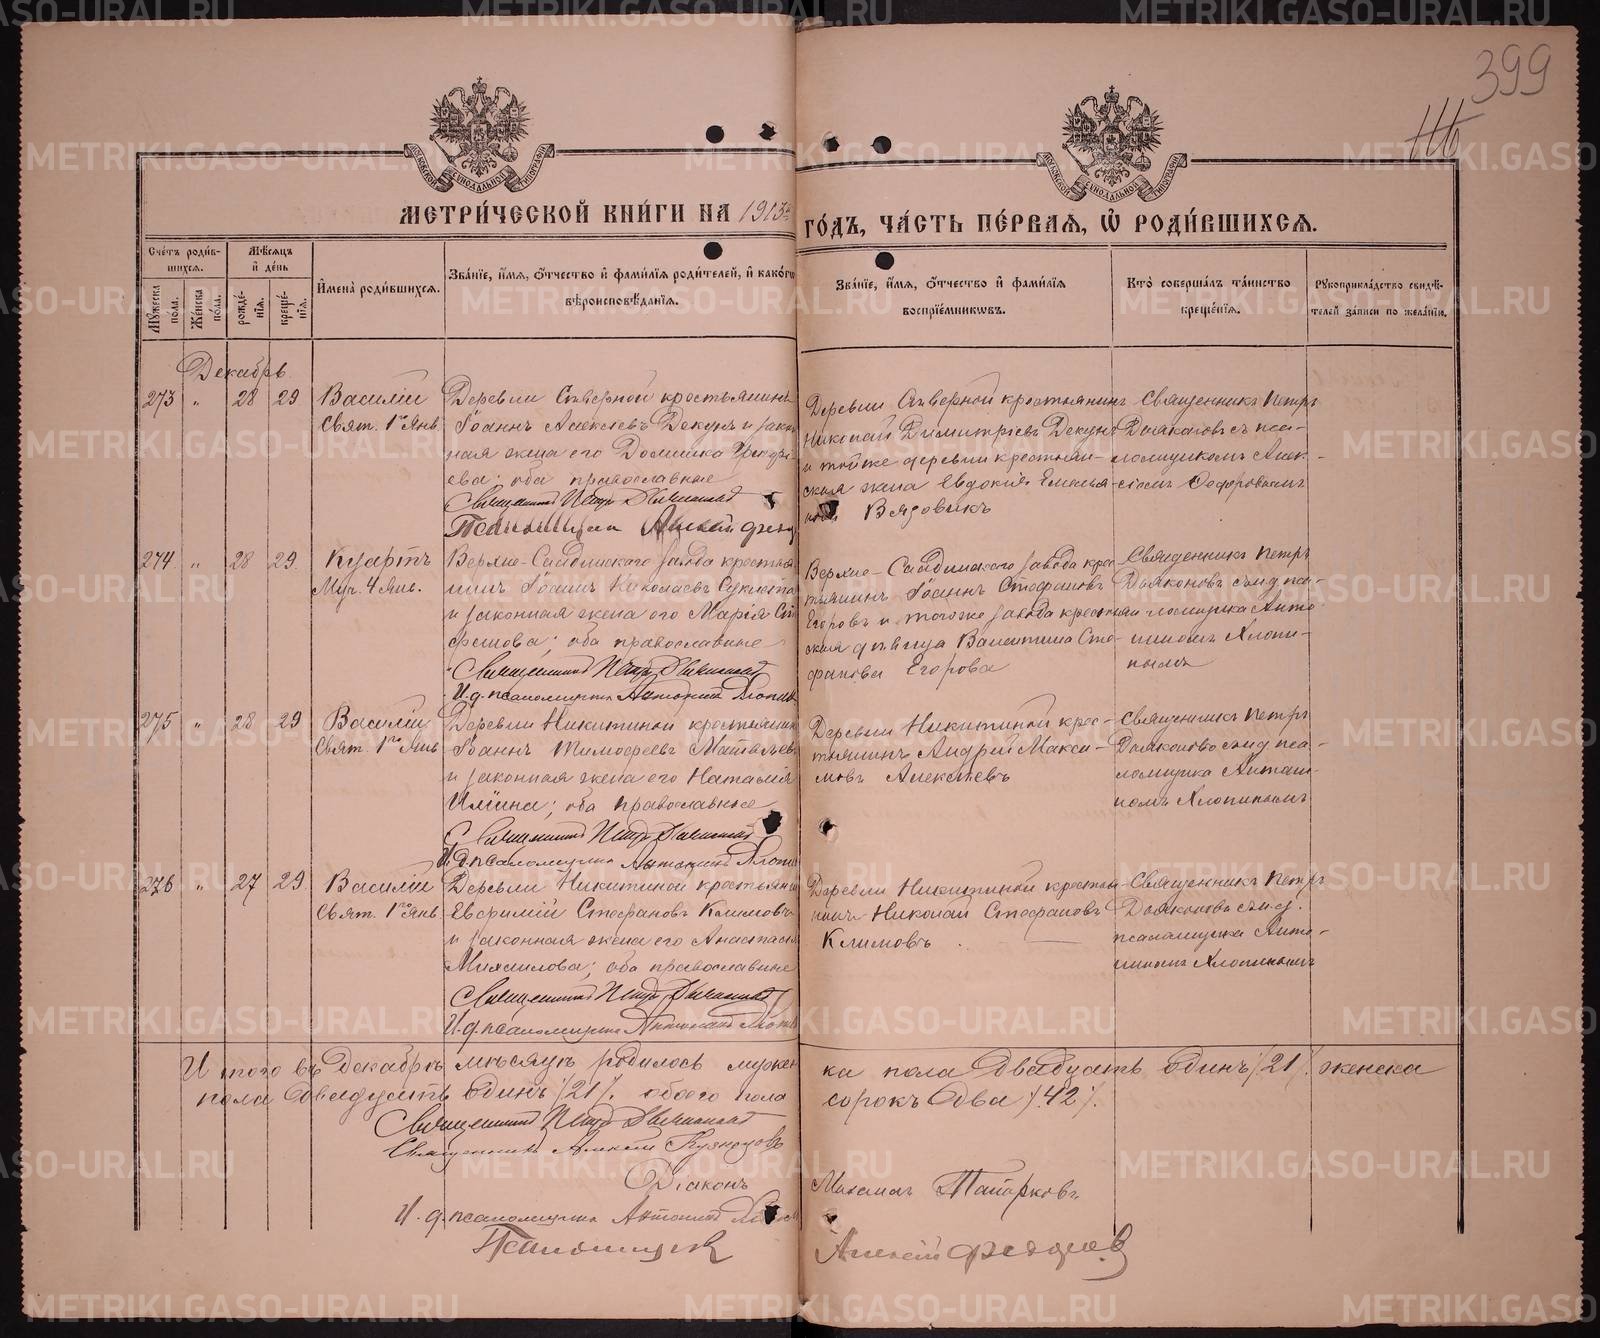 399
МЕТРИ́ЧЕСКОЙ КНИ́ГИ НА 1913й ГО́ДЪ, ЧА́СТЬ ПЕ́РВАЯ, Ѡ҆ РОДИ́ВШИХСЯ.
МОСКОВСКОЙ СѴНОДАЛЬНОЙ ТИПОГРАФІИ
МОСКОВСКОЙ СѴНОДАЛЬНОЙ ТИПОГРАФІИ
Сче́тъ роди́вшихся.
Мꙋ́жеска по́ла.
Же́нска по́ла.
Мѣ́сяцъ и҆ де́нь
рожде́нїя.
креще́нїя.
И҆мена̀ роди́вшихся.
Зва́нїе, и҆́мя, ѻ҆́тчество и҆ фами́лїя роди́телей, и҆ како́гѡ
вѣроисповѣ́данїя.
Зва́нїе, и҆́мя, ѻ҆́тчество и҆ фами́лїя
воспрїе́мникѡвъ.
Кто̀ соверша́лъ та́инство
креще́нїя.
Рꙋкоприкла́дство свидѣ́телей за́писи по жела́нїю.
Декабрь
273 " 28 29 Василій
Свят. 1го Янв.
Деревни Сѣверной крестьянинъ
Іоаннъ Алексѣевъ Декунъ и закон
ная жена его Домника Григорі
ева; оба православные
Священникъ Петръ Дьяконовъ
Псаломщикъ Алексій
Деревни Сѣверной крестьянинъ
Николай Димитріевъ Декунъ
и тойже деревни крестьян-
ская жена Евдокія Емелья
нова Вязовикъ
Священникъ Петръ
Дьяконовъ съ пса-
ломщикомъ Алек-
сіемъ Ѳедоровымъ
274 " 28 29 Куартъ
Муч. 4 Янв.
Верхне-Салдинскаго завода крестья
нинъ Іоаннъ Николаевъ
и законная жена его Марія Сте
фанова; оба православные
Священникъ Петръ Дьяконовъ
И. д. псаломщика Антонинъ Хлопин
Верхне-Салдинскаго завода крес
тьянинъ Іоаннъ Стефановъ
Егоровъ и тогоже завода крестьян
ская дѣвица Валентина Сте-
фанова Егорова
Священникъ Петръ
Дьяконовъ съ и.д. пса-
ломщика Анто-
ниномъ Хлопи-
нымъ
275 " 28 29 Василій
Свят. 1го Янв
Деревни Никитиной крестьянин
Іоаннъ Тимофеевъ Матвѣевъ
и законная жена его Наталія
Иліина; оба православные
Священникъ Петръ Дьяконовъ
И. д. псаломщика Антонинъ Хлопин
Деревни Никитиной крес-
тьянинъ Андрей Макси-
мовъ Алексѣевъ
Священникъ Петръ
Дьяконовъ съ и.д. пса-
ломщика Антони-
номъ Хлопинымъ
276 " 27 29 Василій
Свят. 1го Янв
Деревни Никитиной крестьянин
Евфимій Стефановъ Климовъ
и законная жена его Анастасія
Михаилова; оба православные
Священникъ Петръ Дьяконовъ
И. д. псаломщика Антонинъ Хлопин
Деревни Никитиной крестья
нинъ Николай Стефановъ
Климовъ
Священникъ Петръ
Дьяконовъ съ и.д.
псаломщика Анто-
ниномъ Хлопинымъ
Итого въ Декабрѣ мѣсяцѣ родилось мужес ка пола двадцать одинъ /21/. женска
пола двадцать одинъ /21/. обоего пола сорокъ два /42/.
Священникъ Петръ Дьяконовъ
Священникъ Алексій Кузнецовъ
Діаконъ Михаилъ Топорковъ
И. д. псаломщика Антонинъ
Псаломщикъ Алексій Федоровъ
METRIKI.GASO-URAL.RU